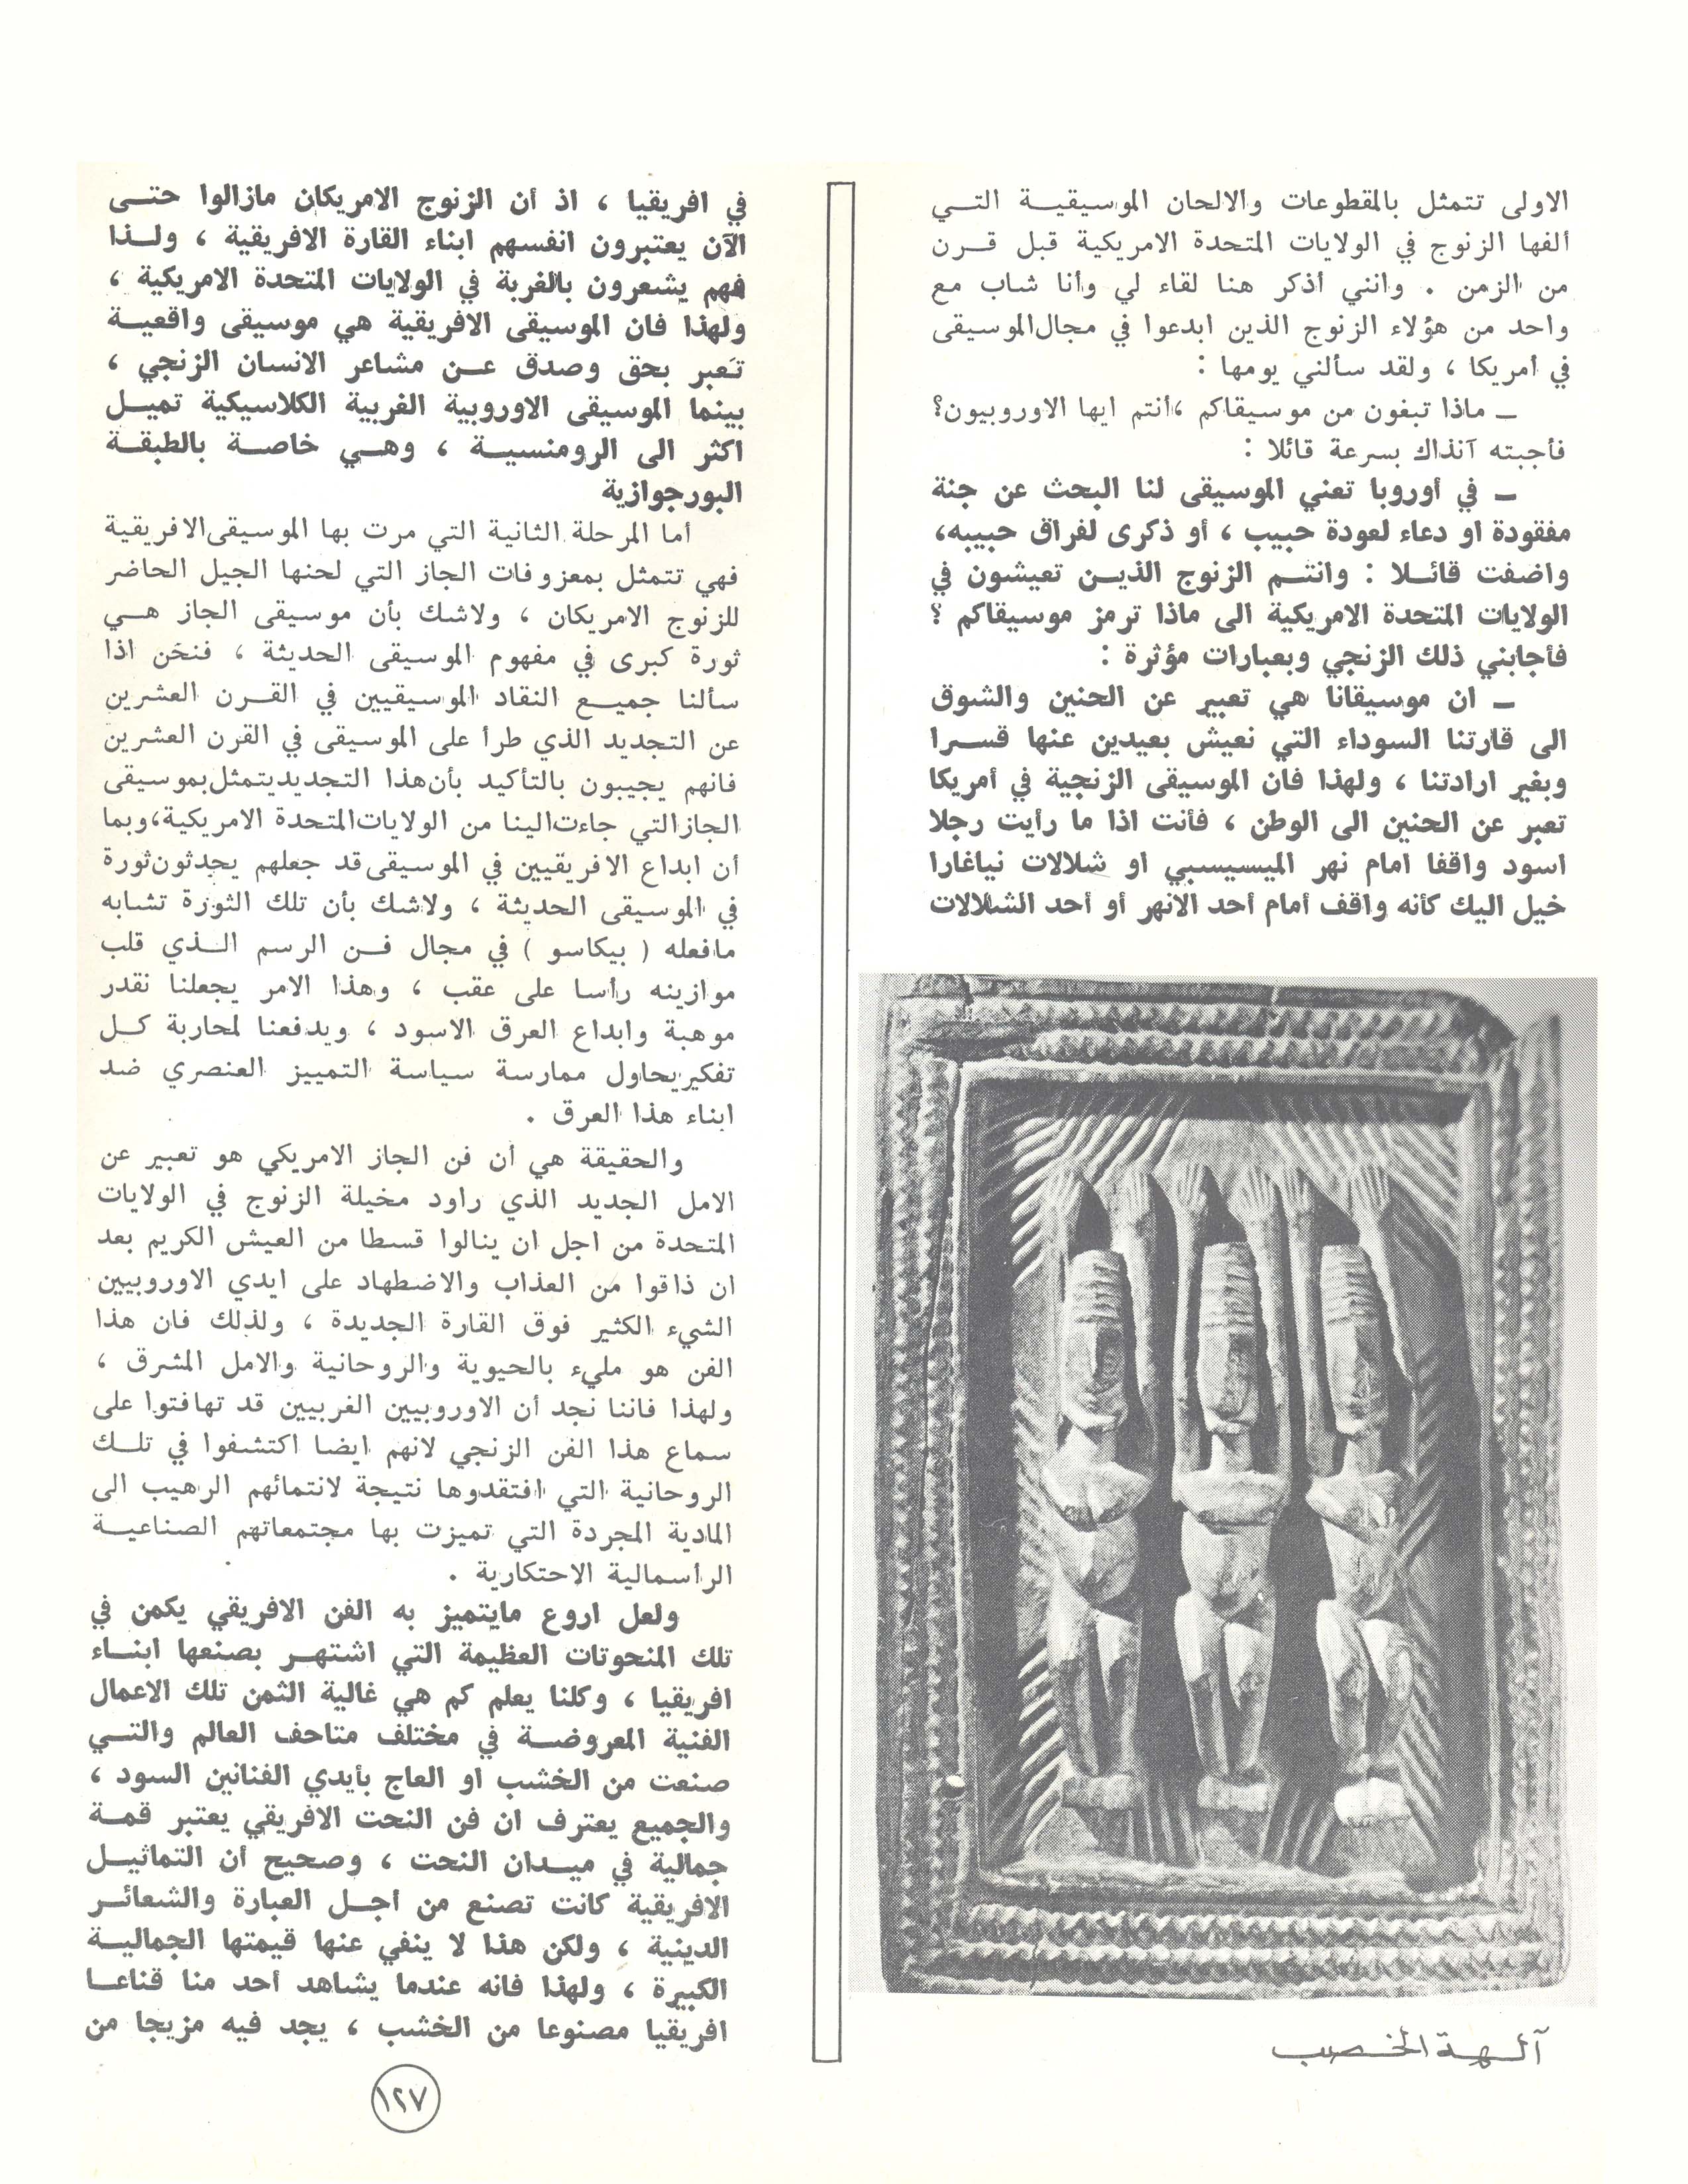 الاولى تتمثل بالمقطوعات والالحان الموسيقية التي
ألفها الزنوج في الولايات المتحدة الامريكية قبل قرن
من الزمن . وانني أذكر هنا لقاء لي وأنا شاب مع
واحد من هؤلاء الزنوج الذين ابدعوا في مجال الموسيقى
في أمريكا ، ولقد سألني يومها :
ـ ماذا تبغون من موسيقاكم ،أنتم ايها الاوروبيون؟
فأجبته آنذاك بسرعة قائلا :
ـ في أوروبا تعني الموسيقى لنا البحث عن جنة
مفقودة او دعاء لعودة حبيب ، أو ذكرى لفراق حبيبه،
واضفت قائلا : وانتم الزنوج الذين تعيشون في
الولايات المتحدة الامريكية الى ماذا ترمز موسيقاكم ؟
فأجابني ذلك الزنجي وبعبارات مؤثرة :
ـ ان موسيقانا هي تعبير عن الحنين والشوق
الى قارتنا السوداء التي نعيش بعيدين عنها قسرا
وبغير ارادتنا ، ولهذا فان الموسيقى الزنجية في أمريكا
تعبر عن الحنين الى الوطن ، فأنت اذا ما رأيت رجلا
اسود واقفا امام نهر الميسيسبي او شلالات نياغارا
خيل اليك كأنه واقف أمام أحد الانهر أو أحد الشلالات
آلهة الخصب
في افريقيا ، اذ أن الزنوج الامريكان مازالوا حتى
الآن يعتبرون انفسهم ابناء القارة الافريقية ، ولذا
فهم يشعرون بالغربة في الولايات المتحدة الامريكية ،
ولهذا فان الموسيقى الافريقية هي موسيقى واقعية
تعبر بحق وصدق عن مشاعر الانسان الزنجي ،
بينما الموسيقى الاوروبية الغربية الكلاسيكية تميل
اكثر الى الرومنسية ، وهي خاصة بالطبقة
البورجوازية
أما المرحلة الثانية التي مرت بها الموسيقى الافريقية
فهي تتمثل بمعزوفات الجاز التي لحنها الجيل الحاضر
للزنوج الامريكان ، ولاشك بأن موسيقى الجاز هي
ثورة كبرى في مفهوم الموسيقى الحديثة ، فنحن اذا
سألنا جميع النقاد الموسيقيين في القرن العشرين
عن التجديد الذي طرأ على الموسيقى في القرن العشرين
فانهم يجيبون بالتأكيد بأن هذا التجديد يتمثل بموسيقى
الجاز التي جاءت الينا من الولايات المتحدة الامريكية،وبما
أن ابداع الافريقيين في الموسيقى قد جعلهم يحدثون ثورة
في الموسيقى الحديثة ، ولاشك بأن تلك الثورة تشابه
مافعله ( بيكاسو ) في مجال فن الرسم الذي قلب
موازينه رأسا على عقب ، وهذا الامر يجعلنا نقدر
موهبة وابداع العرق الاسود ، ويدفعنا لمحاربة كل
تفكير يحاول ممارسة سياسة التمييز العنصري ضد
ابناء هذا العرق .
والحقيقة هي أن فن الجاز الامريكي هو تعبير عن
الامل الجديد الذي راود مخيلة الزنوج في الولايات
المتحدة من اجل ان ينالوا قسطا من العيش الكريم بعد
ان ذاقوا من العذاب والاضطهاد على ايدي الاوروبيين
الشيء الكثير فوق القارة الجديدة ، ولذلك فان هذا
الفن هو مليء بالحيوية والروحانية والامل المشرق ،
ولهذا فاننا نجد أن الاوروبيين الغربيين قد تهافتوا على
سماع هذا الفن الزنجي لانهم ايضا اكتشفوا في تلك
الروحانية التي افتقدوها نتيجة لانتمائهم الرهيب الى
المادية المجردة التي تميزت بها مجتمعاتهم الصناعية
الرأسمالية الاحتكارية .
ولعل اروع مايتميز به الفن الافريقي يكمن في
تلك المنحوتات العظيمة التي اشتهر بصنعها ابناء
افريقيا ، وكلنا يعلم كم هي غالية الثمن تلك الاعمال
الفنية المعروضة في مختلف متاحف العالم والتي
صنعت من الخشب او العاج بأيدي الفنانين السود ،
والجميع يعترف ان فن النحت الافريقي يعتبر قمة
جمالية في ميدان النحت ، وصحيح أن التماثيل
الافريقية كانت تصنع من اجل العبارة والشعائر
الدينية ، ولكن هذا لا ينفي عنها قيمتها الجمالية
الكبيرة ، ولهذا فانه عندما يشاهد أحد منا قناعا
افريقيا مصنوعا من الخشب ، يجد فيه مزيجا من
١٢٧